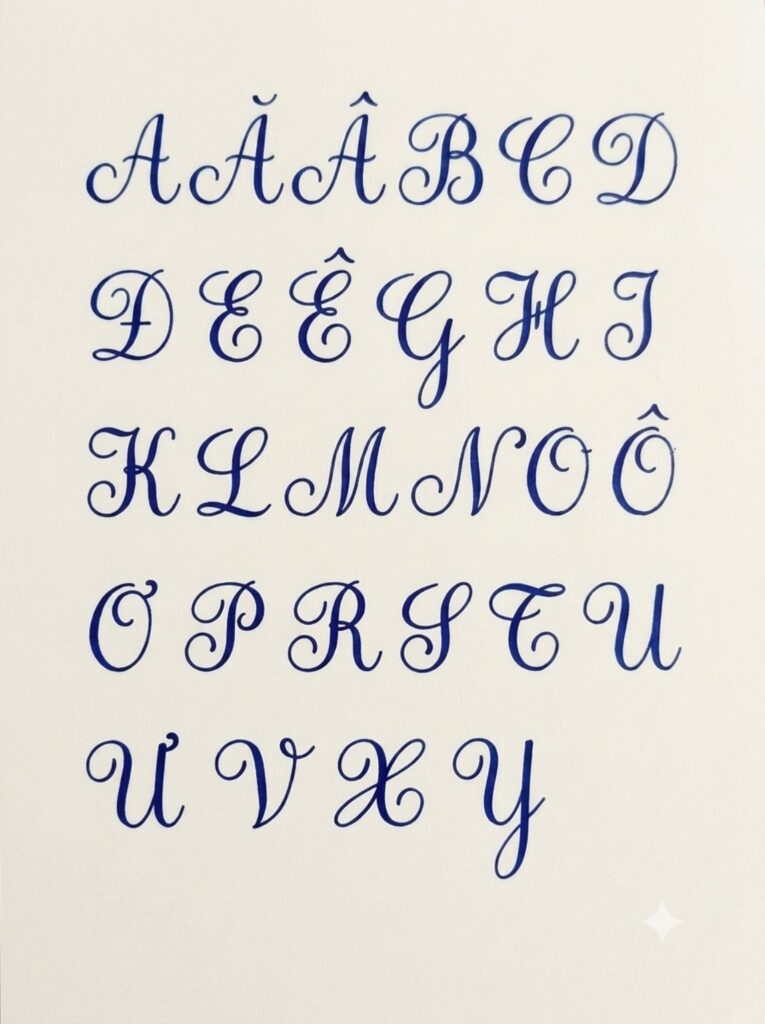 A Ă Â B C D
Đ E Ê G H I
K L M N O Ô
Ơ P R S T U
Ư V X Y